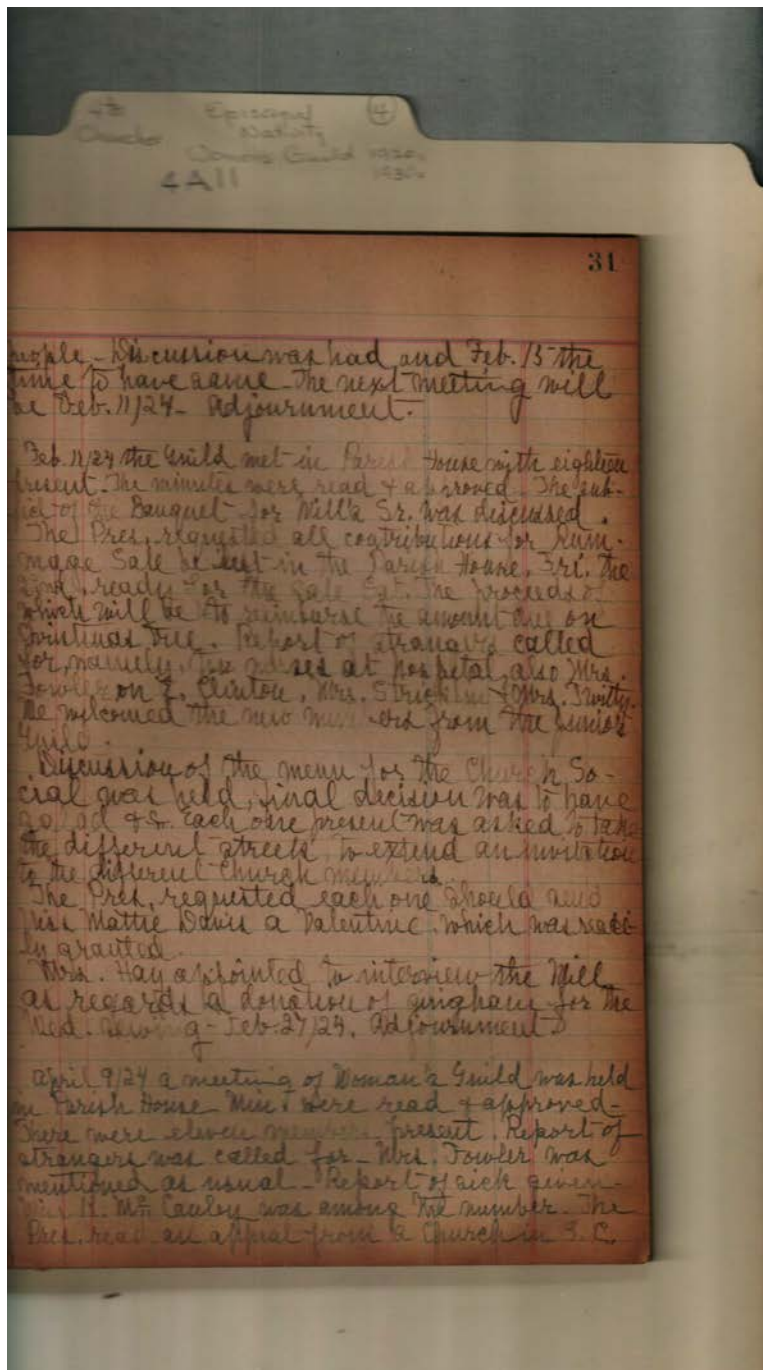 Episcopal
Nativity
4
Guild 1920s
1930s
4A11
31
people - Discussion was had and Feb. 15 the
time to have same - The next meeting will
be Feb. 11/24 - Adjournment.
Feb. 11/24 the Guild met in Parish House with eighteen
present. The minutes were read & approved. The sub-
ject of the Bouquet for Sr. was discussed.
The Pres. requested all contributions for Rum-
mage Sale be left in the Parish House, Fri. the
ready for the sale Sat. The proceeds of
which will be to reimburse the amount due on
Christmas Tree. Report of strangers called
for, namely, nurses at hospital, also Mrs.
Fowler on E. Clinton, Mrs. & Mrs. Twitty.
We welcomed the new members from the Junior
Guild.
Discussion of the menu for the Church So-
cial was held, final decision was to have
salad &c. Each one present was asked to take
the different streets, to extend an invitation
to the different Church members.
The Pres. requested each one should send
Miss Mattie Davis a Valentine, which was readi-
ly granted.
Mrs. Hay appointed to interview the Mill
as regards a donation of gingham for the
Wed. Sewing - Feb. 27/24. Adjournment.
April 9/24 a meeting of Woman's Guild was held
in Parish House - Min's were read & approved -
There were eleven members present. Report of
strangers was called for - Mrs. Fowler was
mentioned as usual - Report of sick given -
was among the number. The
Pres. read an appeal from a Church in S. C.